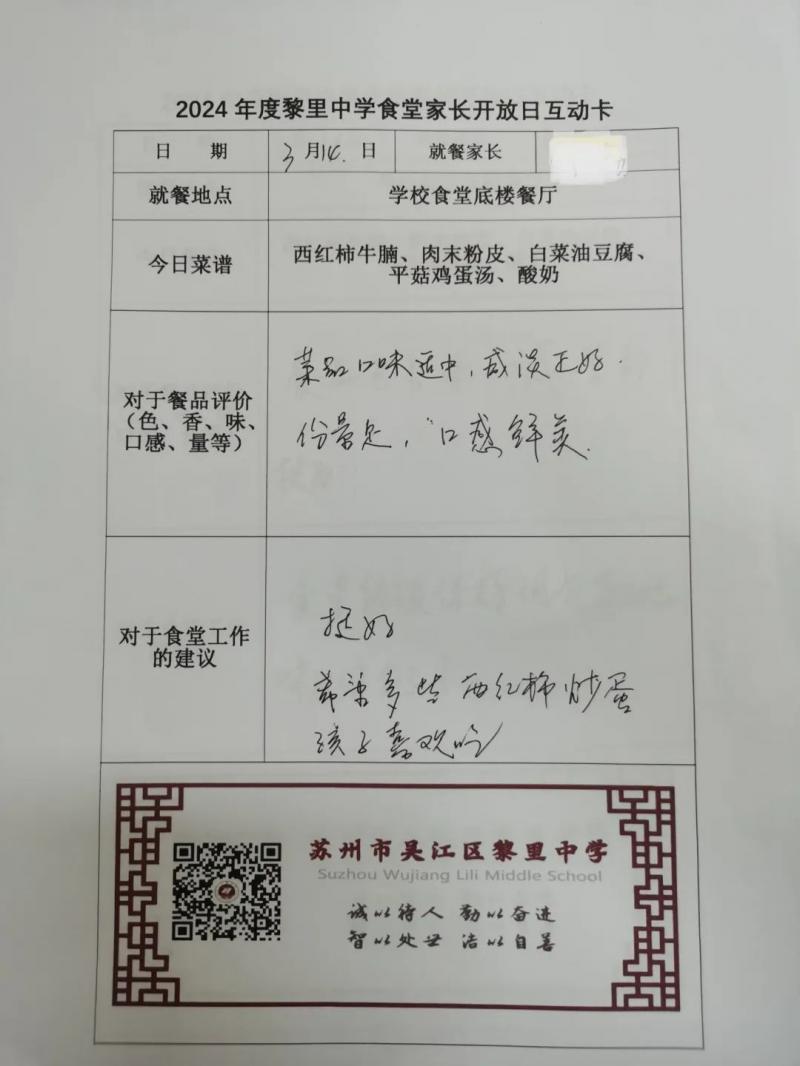 2024年度黎里中学食堂家长开放日互动卡
日 期 3月14.日 就餐家长
就餐地点 学校食堂底楼餐厅
今日菜谱 西红柿牛腩、肉末粉皮、白菜油豆腐、
平菇鸡蛋汤、酸奶
对于餐品评价
(色、香、味、
口感、量等)
菜品口味适中,咸淡正好.
份量足,口感鲜美.
对于食堂工作
的建议
挺好
希望多些西红柿炒蛋
孩子喜欢吃
苏州市吴江区黎里中学
Suzhou Wujiang Lili Middle School
诚以待人 勤以奋进
智以处世 洁以自善